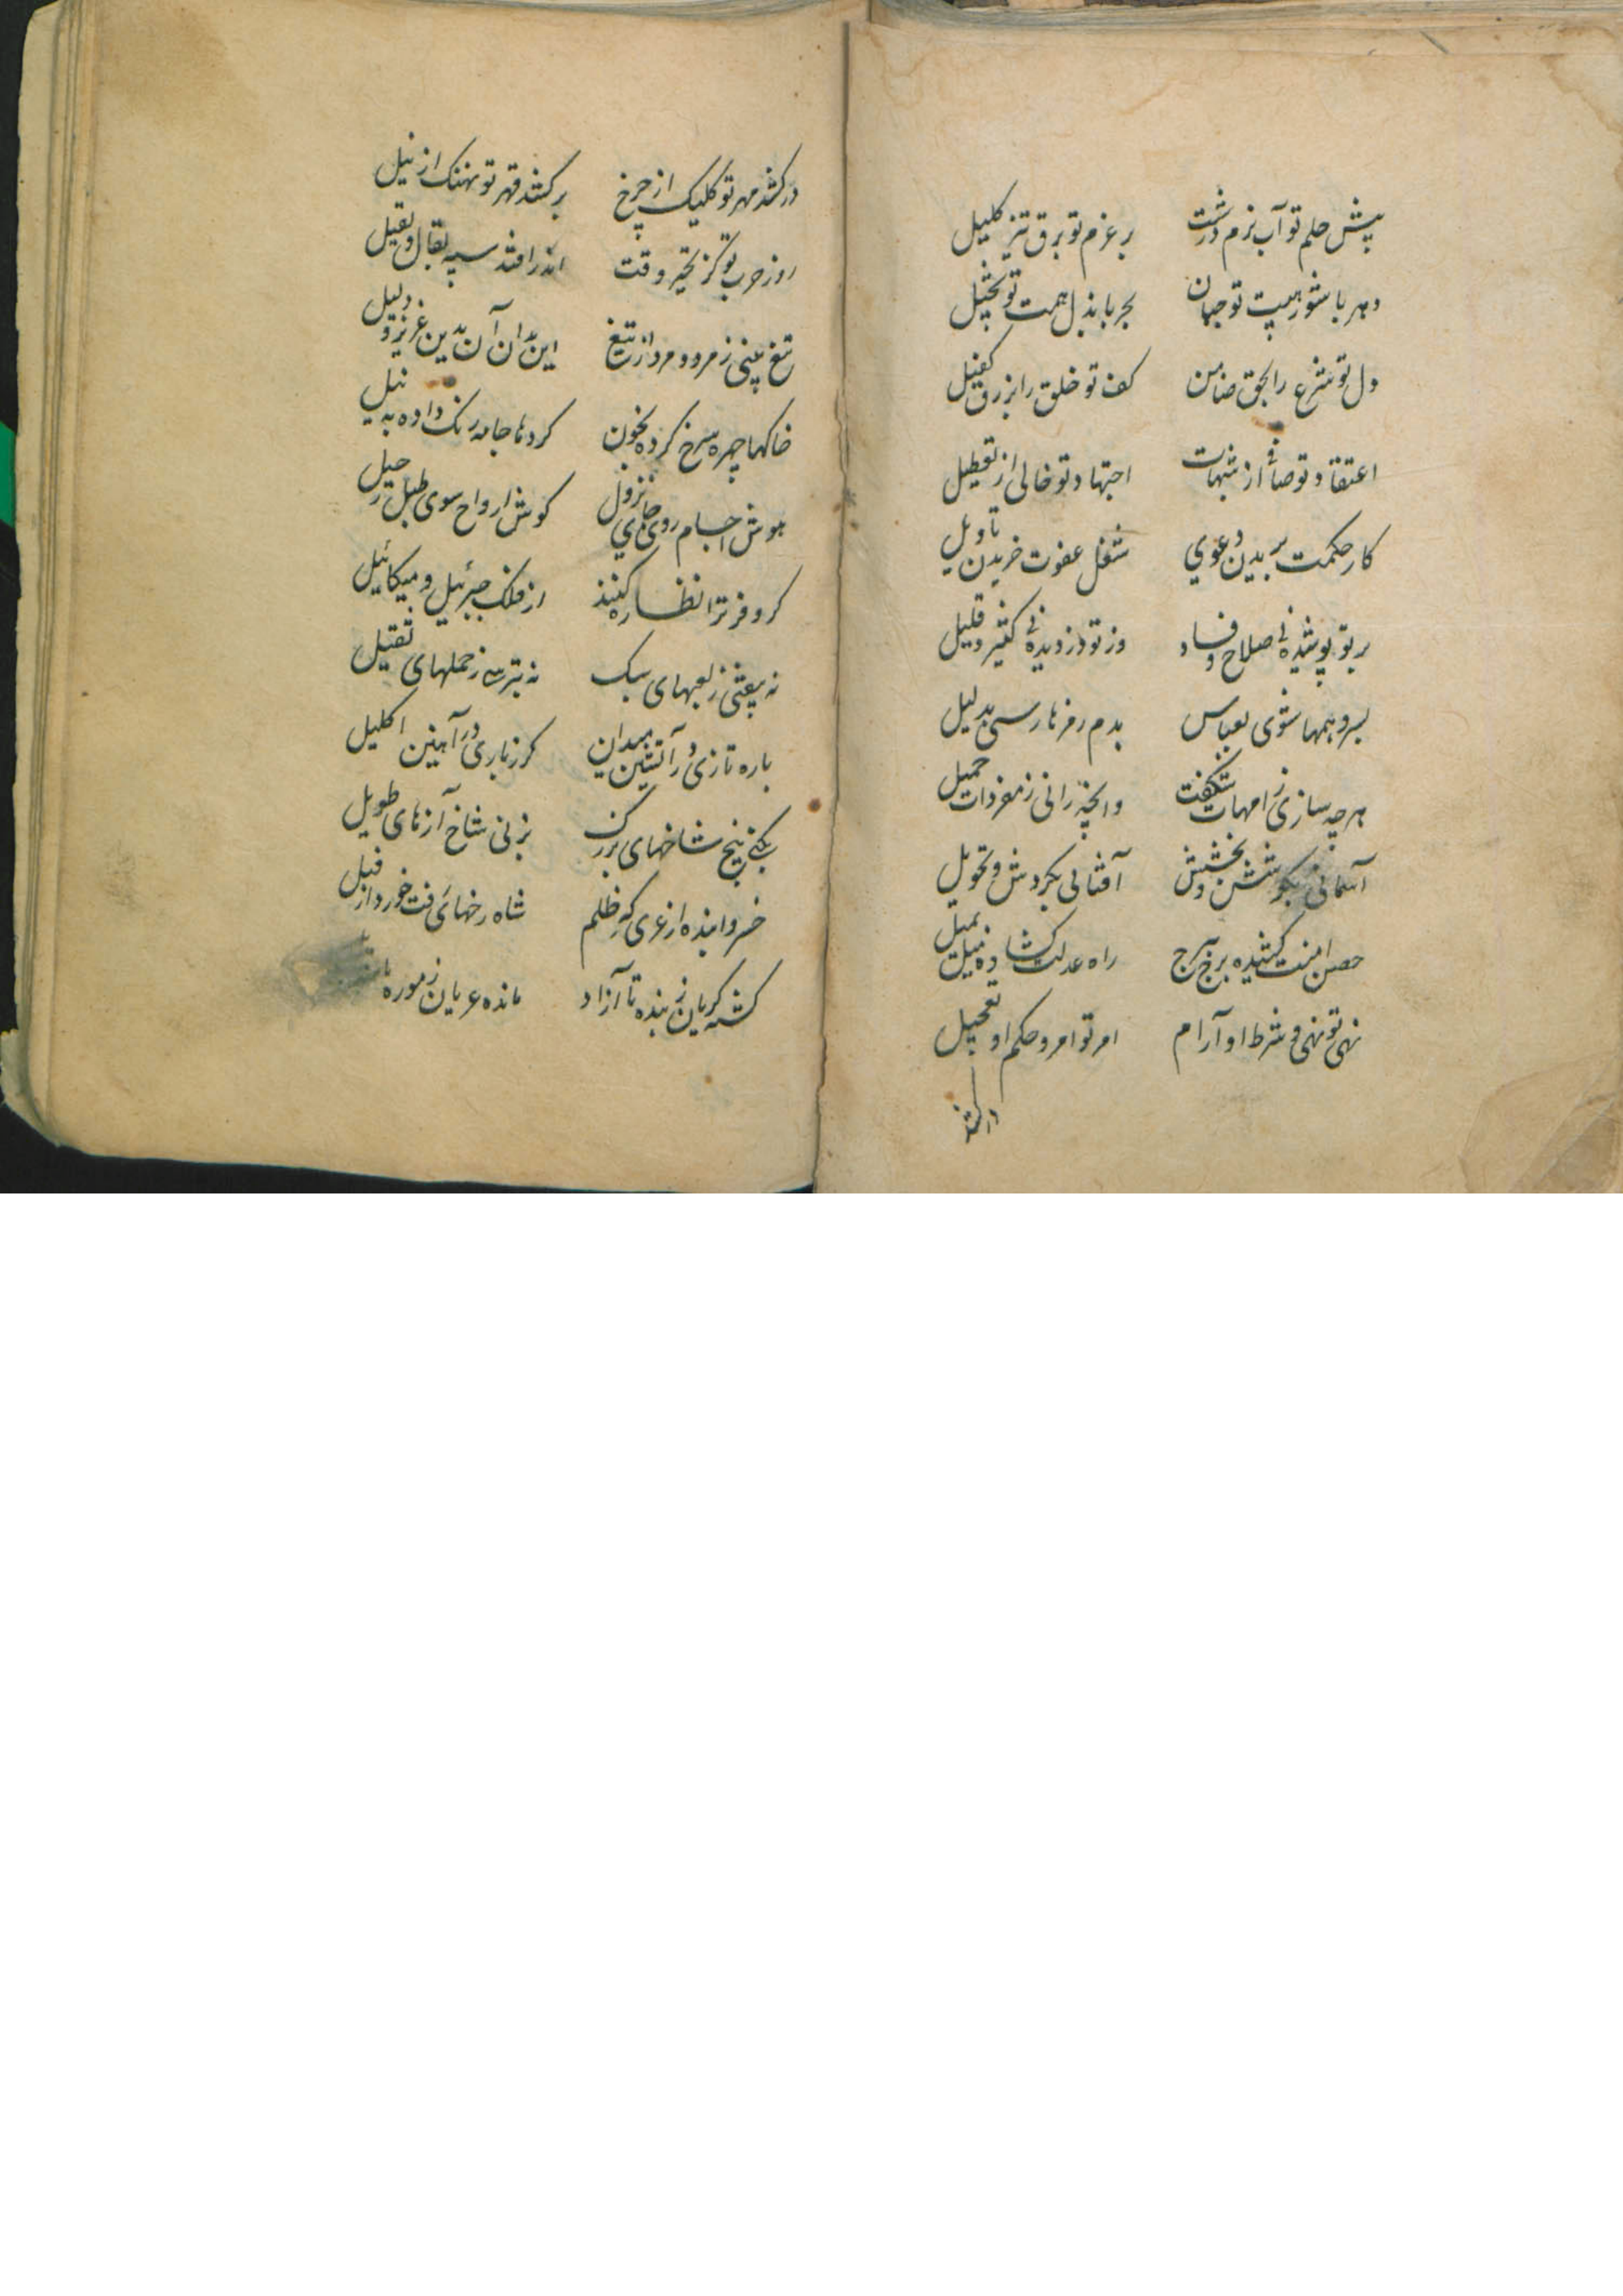 پیش حلم تو آب نرم درشت بر عزم تو برق تیز کلیل
دهر با شور هیبت تو جبان بحر با بذل همت تو بخیل
دل تو شرع را بحق ضامن کف تو خلق را برزق کفیل
اعتقاد تو صافی از شبهات اجتهاد تو خالی از تعطیل
کار حکمت بریدن دعوی شغل عفوت خریدن تاویل
بر تو پوشیده نی صلاح و فساد وز تو دزدیده نی کثیر و قلیل
بسر وهمها شوی بقیاس بدم رمزها رسی بدلیل
هر چه سازی ز امهات شگفت وانچه رانی ز مفردات جمیل
آسمانی بکوشش و بخشش آفتابی بگردش و تحویل
حصن امنت کشیده برج ببرج راه عدلت گشاده میل بمیل
نهی تو نهی و شرط او آرام امر تو امر و حکم او تعجیل
درکشد
درکشد مهر تو کلیک از چرخ برکشد قهر تو نهنک از نیل
روز حرب تو کز تحیر وقت اندر افتد سپه بقال و بقیل
تیغ بینی ز مرد و مرد از تیغ این بدان آن بدین عزیز و ذلیل
خاکها چهره سرخ کرده بخون کردها جامه رنک داده به نیل
هوش اجسام روی جای نزول کوش ارواح سوی طبل رحیل
کر و فر ترا نظاره کنند از فلک جبرئیل و میکائیل
نه بیفتی ز لعبهای سبک نه بترسی ز حملهای ثقیل
باره تازی در آتشین میدان کرز باری در آهنین اکلیل
بکنی بیخ شاخهای بزرک بزنی شاخ آزهای طویل
خسروا بنده از عری که ز ظلم شاه رخهای فت خورد از فیل
کشته کریان ز بنده تا آزاد مانده عریان ز موره تا